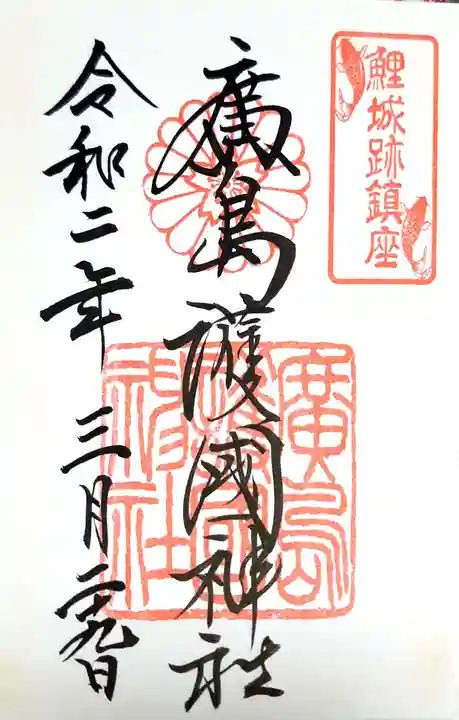 鯉城跡鎮座
廣島護國神社
廣島護國神社
令和二年三月二十九日